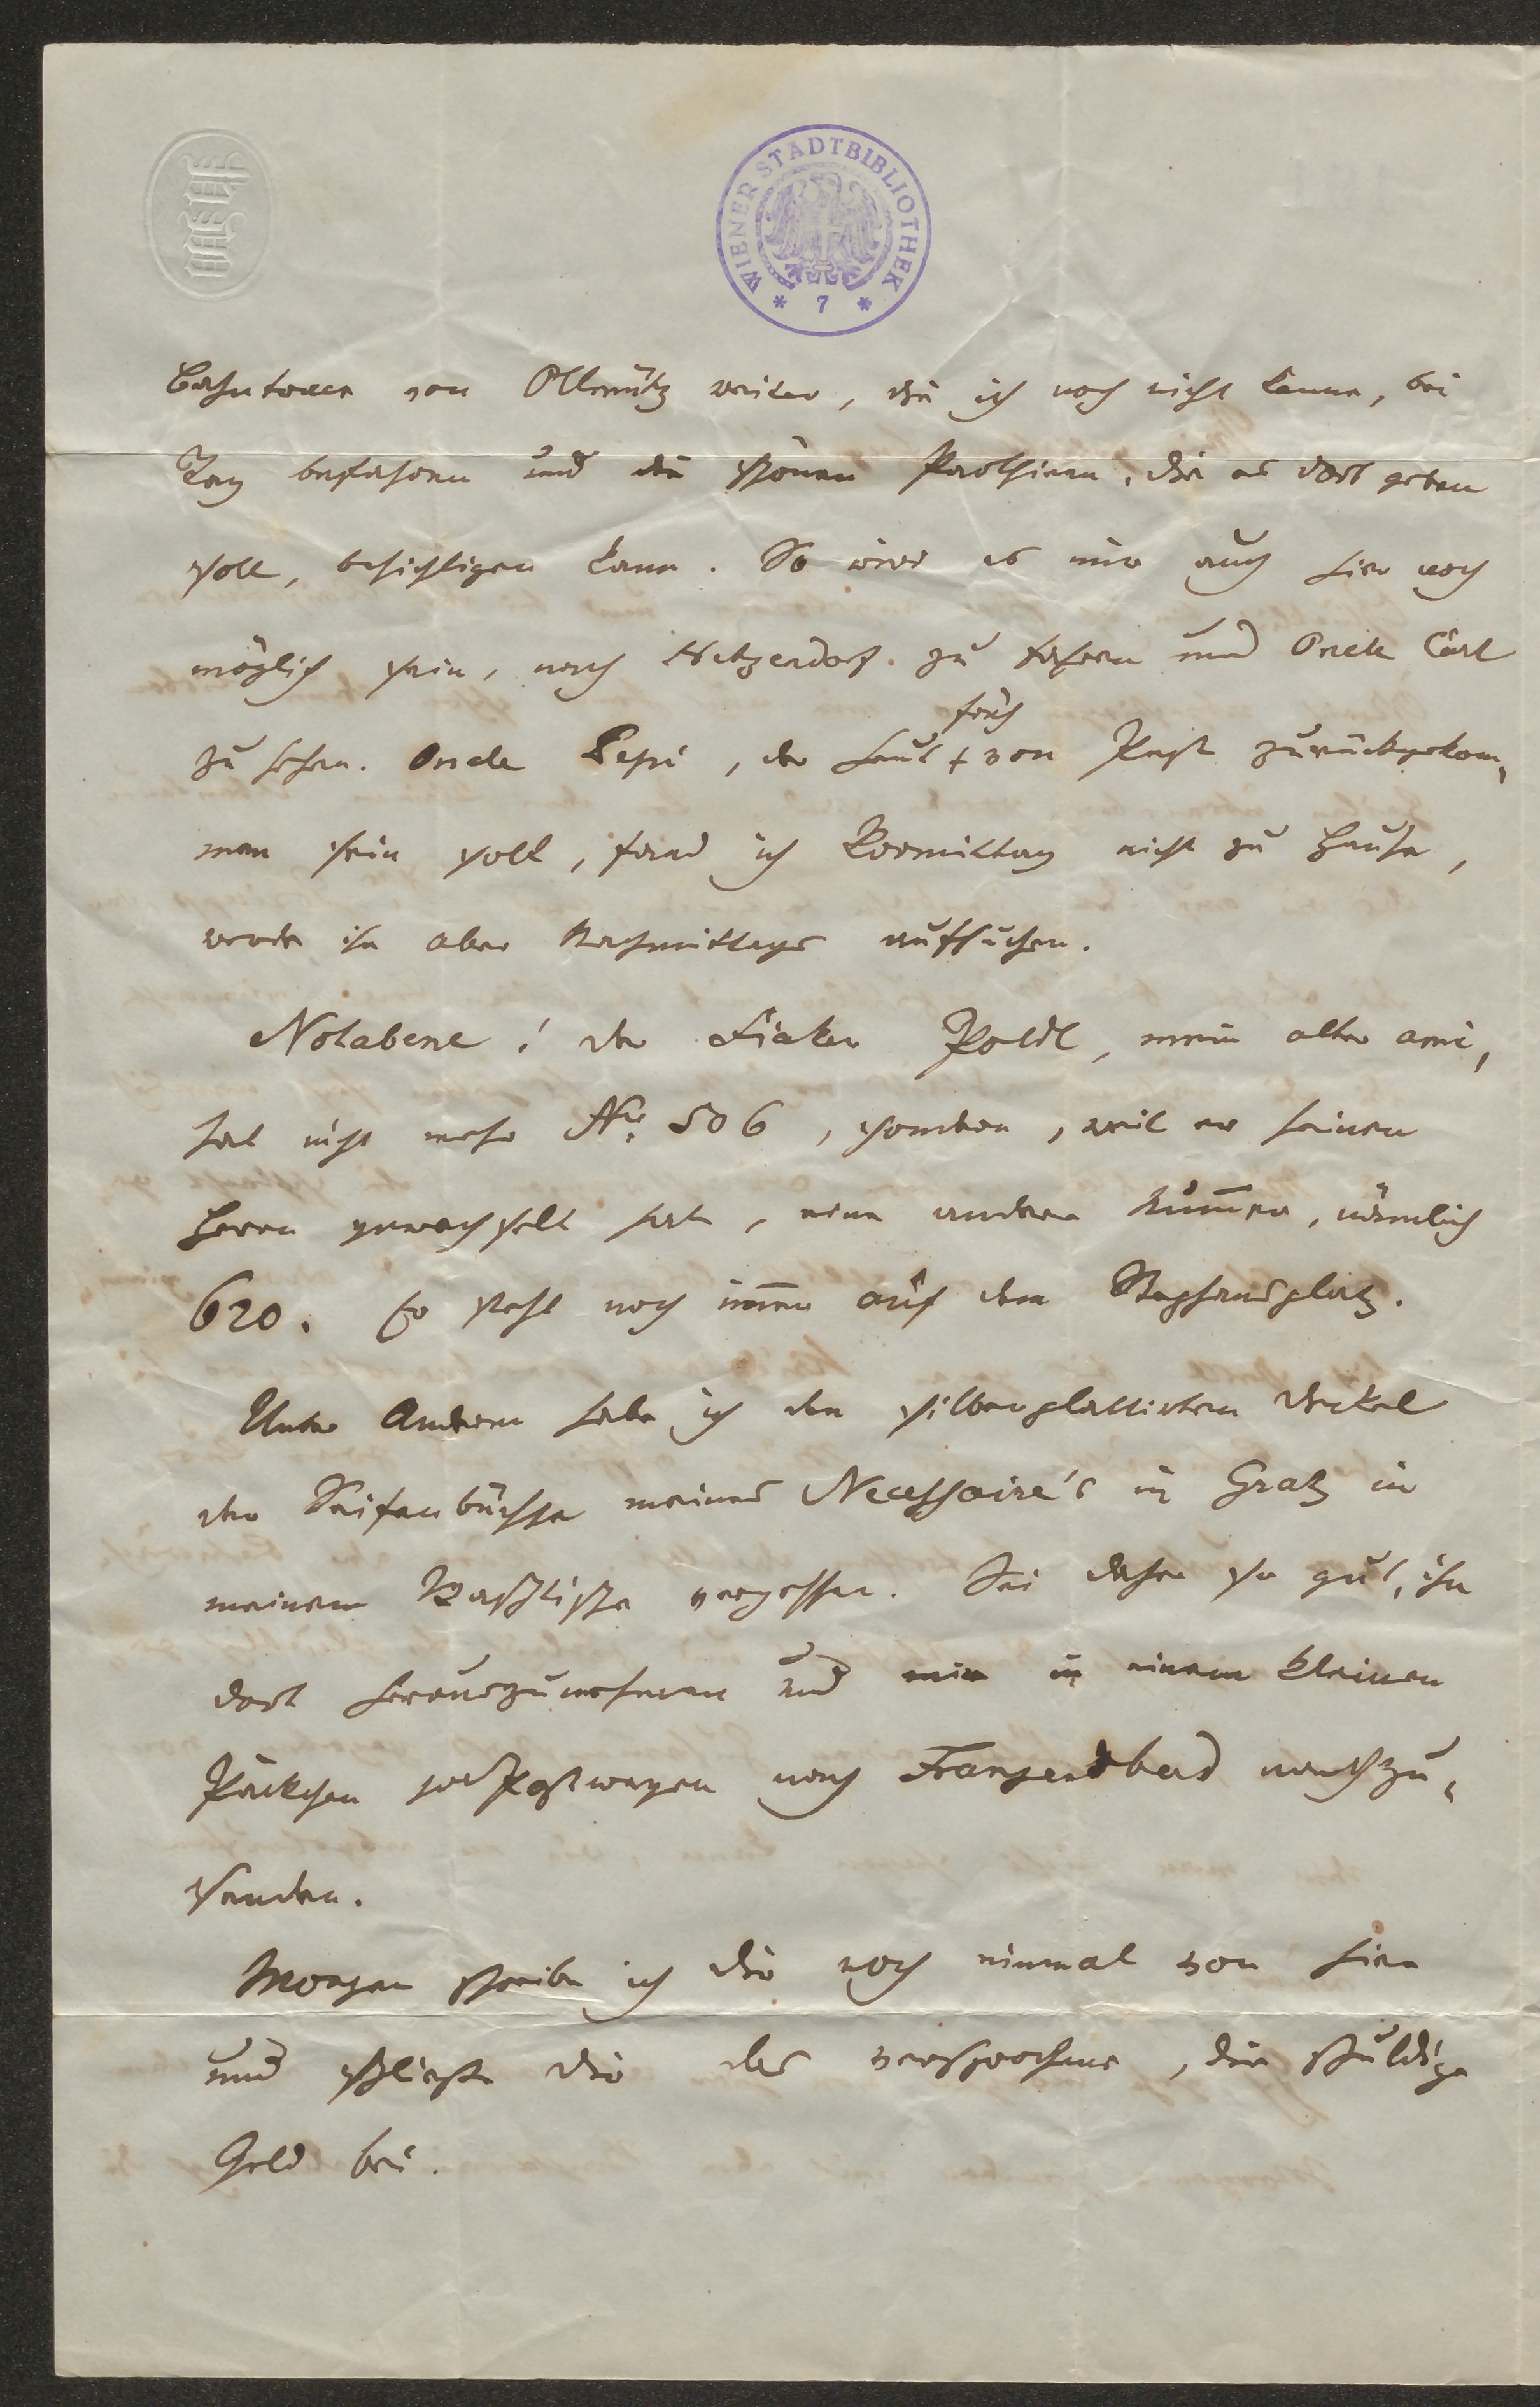 WIENER STADTBIBLIOTHEK
* 7 *
Bahntrace von Ollmütz weiter, die ich noch nicht kenne, bei
Tag befahren und die schönen Parthieen, die es dort geben
soll, besichtigen kann. So wird es mir auch hier noch
möglich sein, nach Hetzendorf zu fahren und Oncle Carl
zu sehen. Oncle Pepi, der heut + von Pest zurückgekom-
früh
men sein soll, fand ich Vormittag nicht zu Hause,
werde ihn aber Nachmittags aufsuchen.
Notabene! der Fiaker Poldl, mein alter ami,
hat nicht mehr Nr. 506, sondern, weil er seinen
Herrn gewechselt hat, eine andere Num̄er, nämlich
620. Er steht noch im̄er auf dem Stephansplatz.
Unter Anderm habe ich den silberplattirten Deckel
der Seifenbüchse meines Necessaire's in Gratz in
meinem Waschtische vergessen. Sei daher so gut, ihn
dort herauszunehmen und mir in einem kleinen
Päckchen per Postwagen nach Franzensbad nachzu-
senden.
Morgen schreibe ich Dir noch einmal von hier
und schließe Dir das versprochene, Dir schuldige
Geld bei.